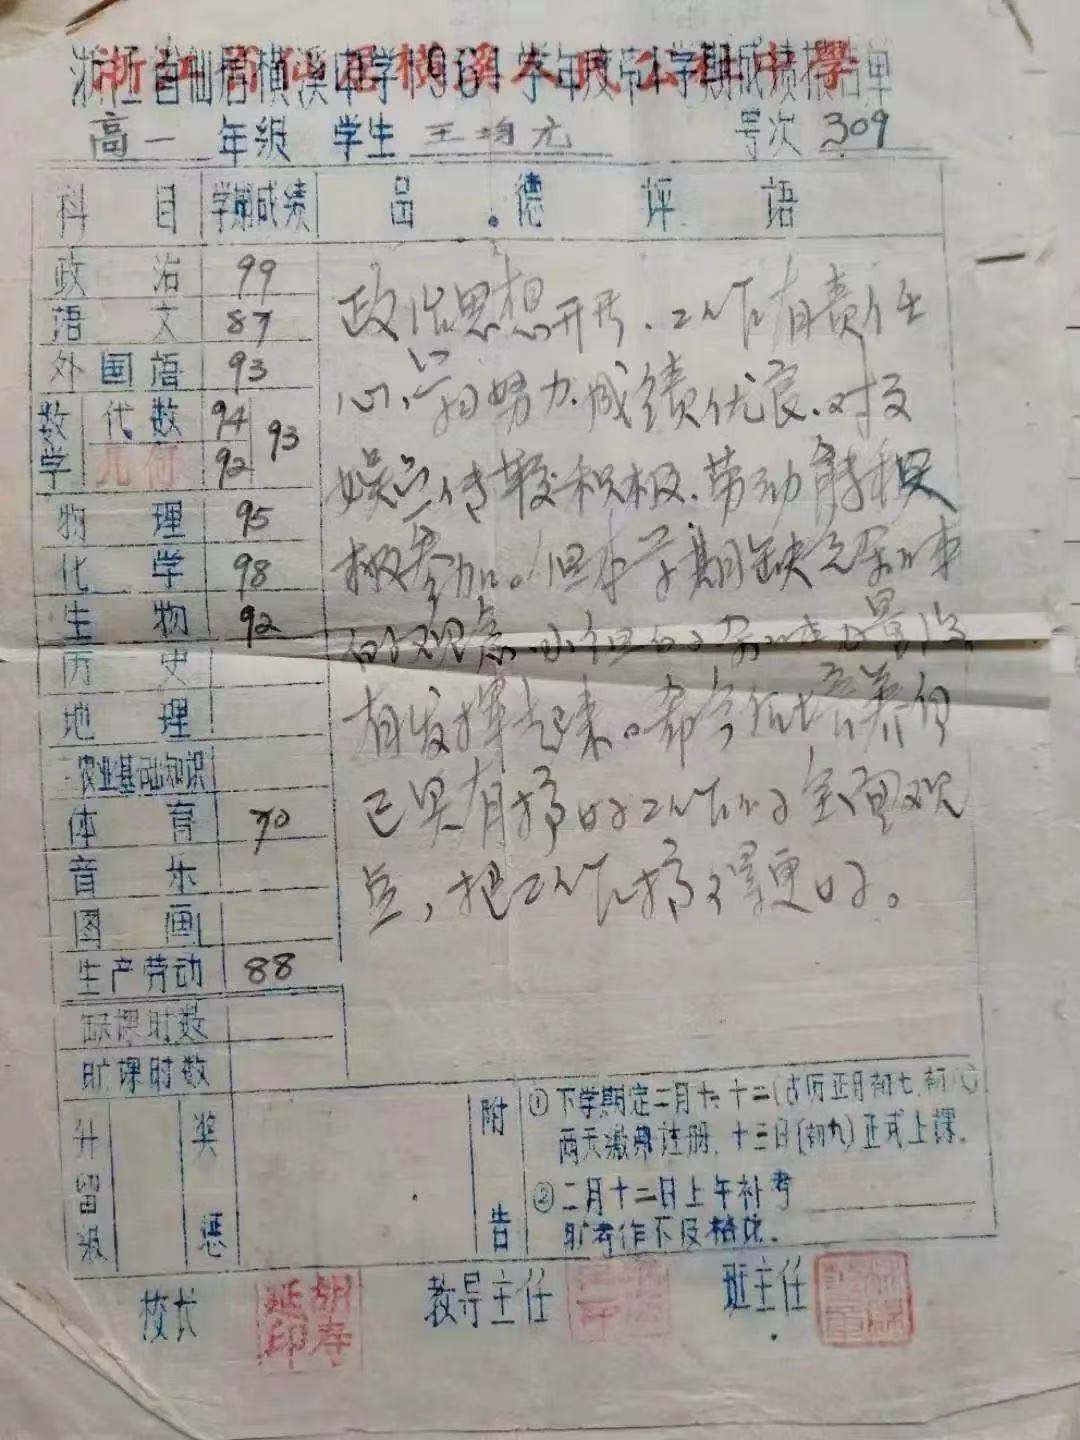 浙江省仙居横溪中学1961学年度第1学期成绩报告单
高一 年级 学生 王均尤 号次 309
科目 学期成绩 品德评语
政治 99
语文 87
外国语 93
数学 代数 94 93
几何 92
物理 95
化学 98
生物 92
历史
地理
农业基础知识
体育 70
音乐
图画
生产劳动 88
缺课时数
旷课时数
政治思想开展、工作有责任
心、学习努力、成绩优良、对文
娱宣传较积极、劳动能积
极参加。但本学期缺乏
的观点、小组的力量没
有发挥起来。希今后培养自
己具有搞好工作的全面观
点，把工作搞得更好。
升留级 奖惩 附告
①下学期定二月十一、十二(古历正月初七、初八)
两天缴费注册，十三日(初九)正式上课。
②二月十二日上午补考
旷考作不及格论。
校长 胡寿延印 教导主任 班主任